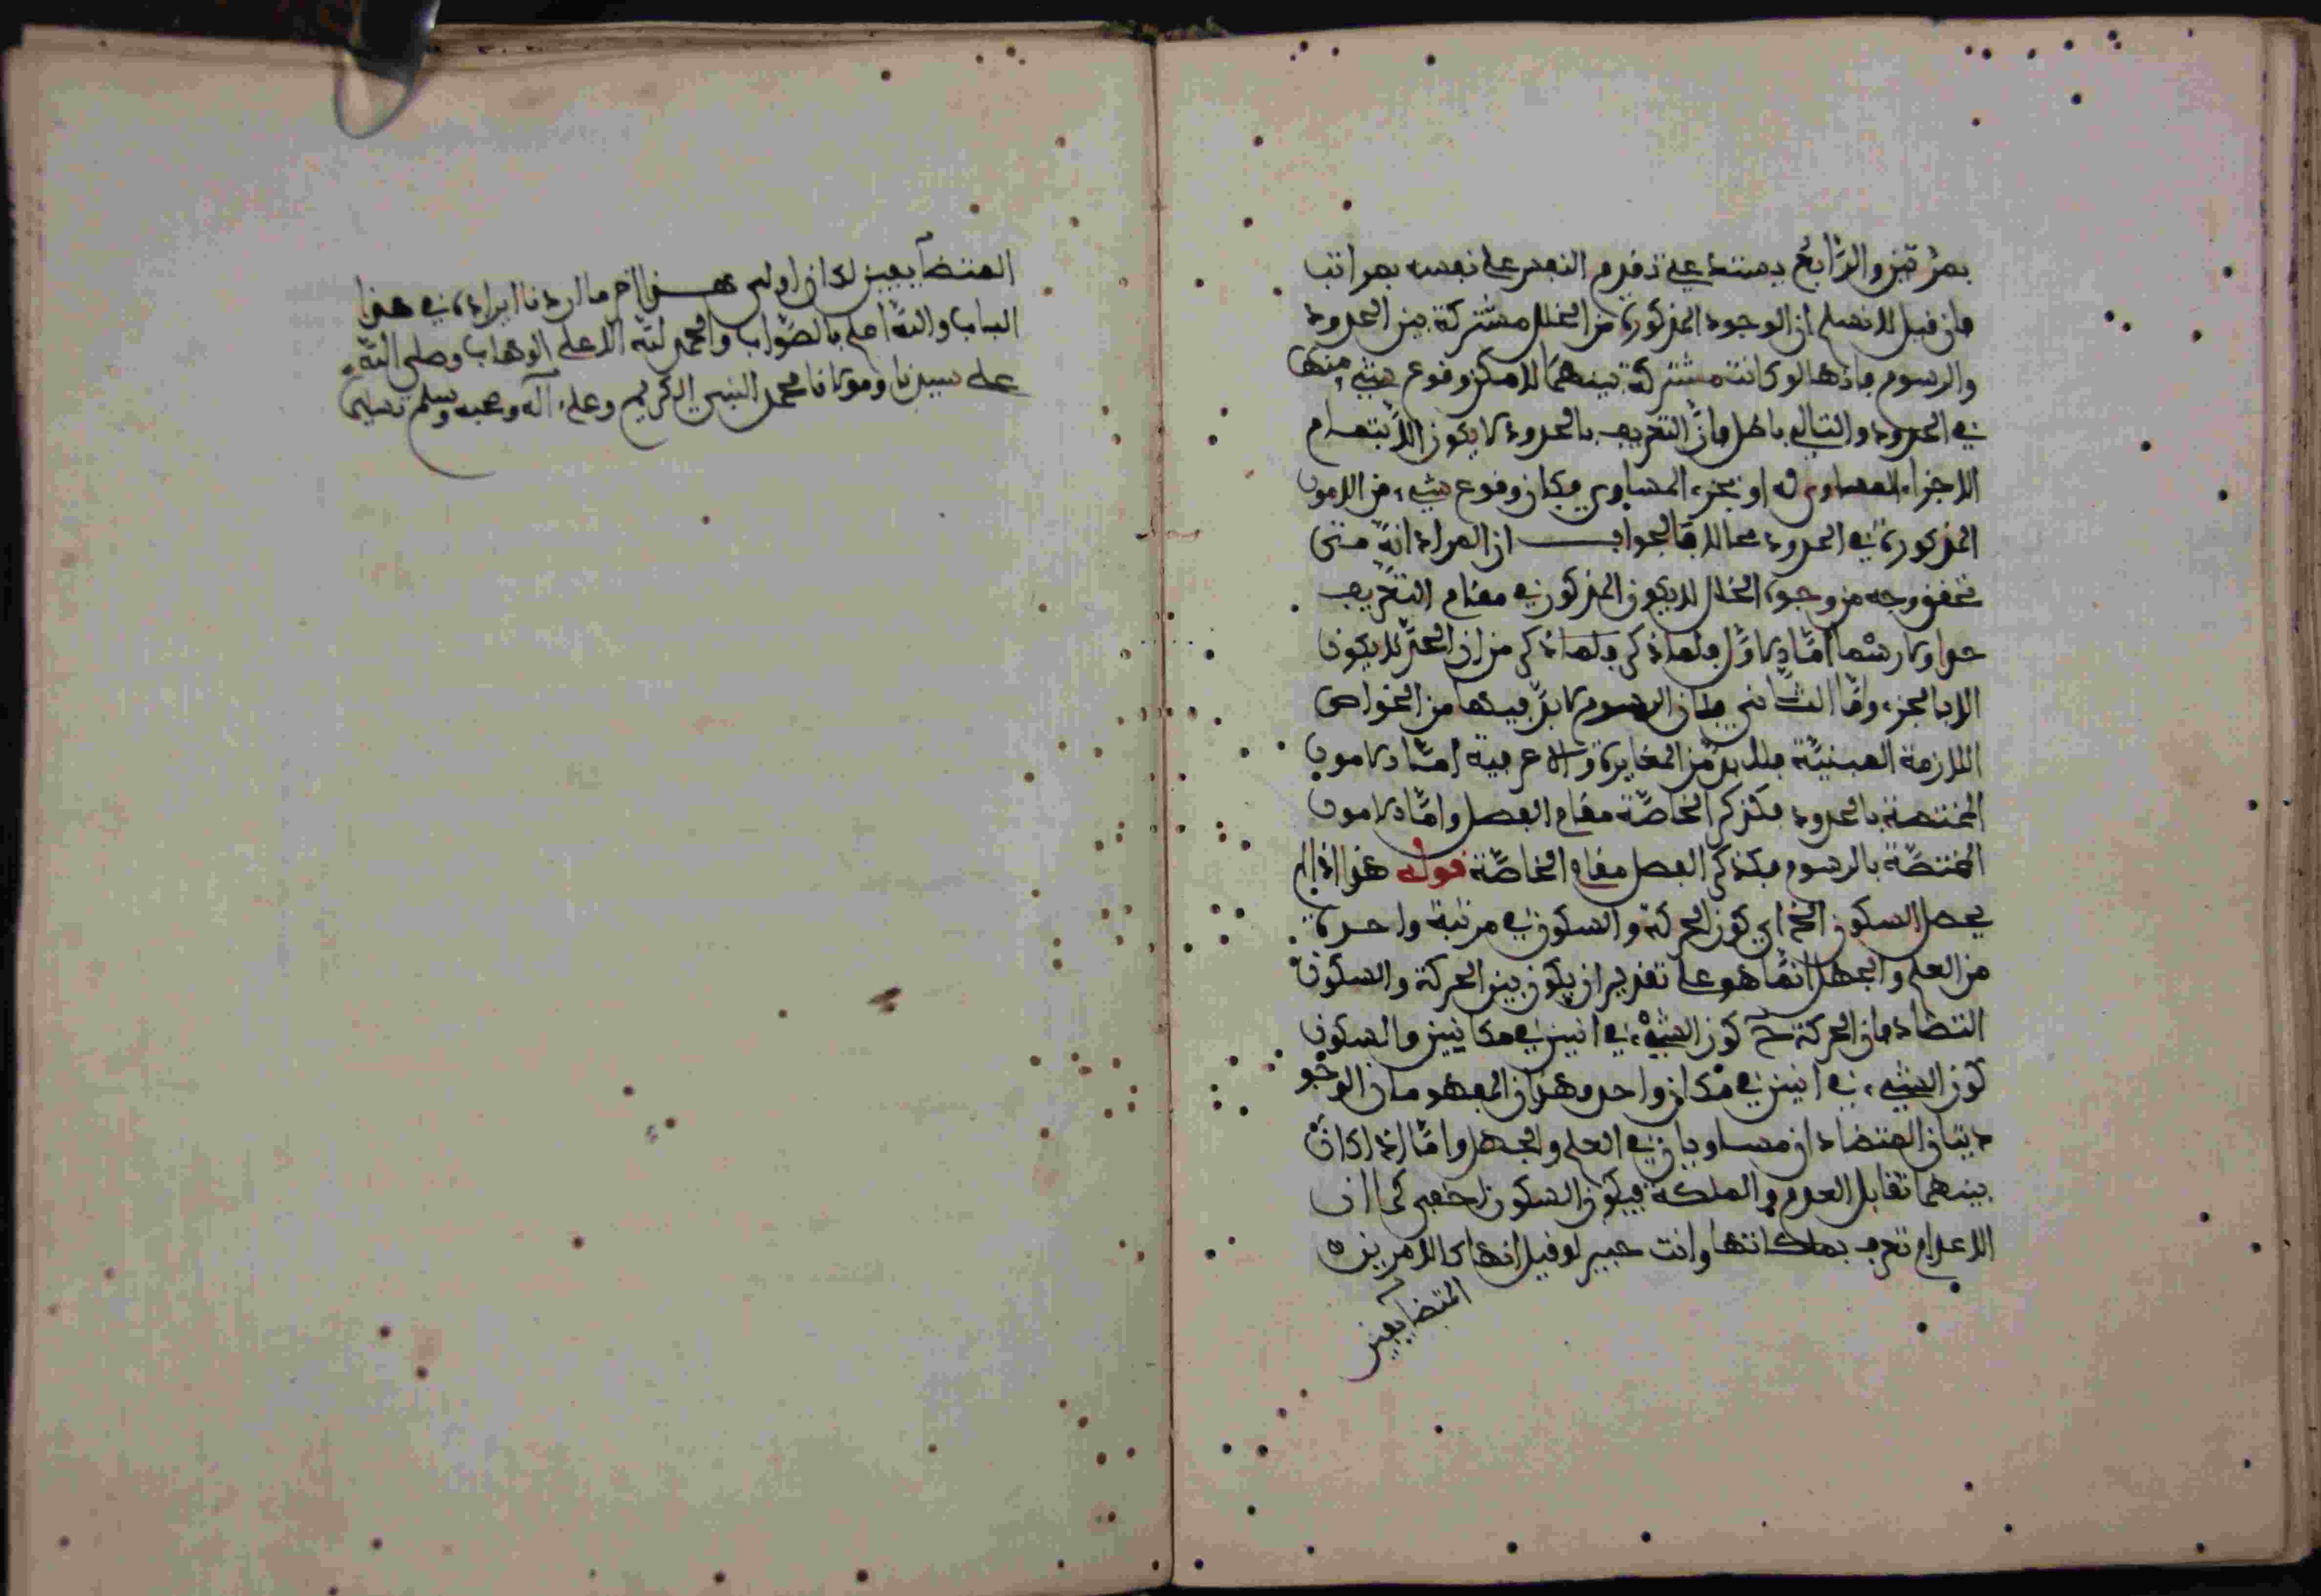 بمرتبتين والرابع يشتمل على تقدم النفس على نفسه بمراتب
فان قيل لا نسلم ان الوجوه المذكورة من الخلل مشتركة بين الحدود
والرسوم فانها لو كانت مشتركة بينهما لامكن وقوع شيء منها
في الحدود والتالي باطل فان التعريف بالحدود لا يكون الا بتمام
الاجزاء المساوي له او بجزء المساوي فكان وقوع شيء من الامور
المذكورة في الحدود محالا فالجواب ان المراد انه متى
تحقق وجه من وجوه الخلل لا يكون المذكور في مقام التعريف
حدا ولا رسما اما الاول فلما ذكر من ان الحد لا يكون
الا بالجزء واما الثاني فلان الرسوم لا بد فيها من الخواص
اللازمة البينة فلا بد من المغايرة والاعرفية اما الامور
المختصة بالحدود فكذكر الخاصة مقام الفصل واما الامور
المختصة بالرسوم فكذكر الفصل مقام الخاصة قوله هذا اذا لم
يجعل السكون الخ اي كون الحركة والسكون في مرتبة واحدة
من العلم والجهل انما هو على تقدير ان يكون بين الحركة والسكون
التضاد فان الحركة ح كون الشيء في انين في مكانين والسكون
كون الشيء في انين في مكان واحد وهذان المفهومان الوجو
ديتان المتضادان مساويان في العلم والجهل واما اذا كان
بينهما تقابل العدم والملكة فيكون السكون اخفى لما ان
الاعدام تعرف بملكاتها وانت خبير لو قيل انها كالامرين
المتضايفين
المتضايفين لكان اولى هذا اخر ما اردنا ايراده في هذا
الباب والله اعلم بالصواب والحمد لله الاعلى الوهاب وصلى الله
على سيدنا ومولانا محمد النبي الكريم وعلى آله وصحبه وسلم تسليما